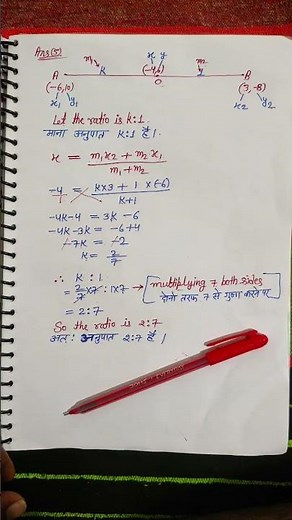 Ans(5)
m₁ x y m₂
k (-4,6) 1
A O B
(-6,10) (3,-8)
x₁ y₁ x₂ y₂
Let the ratio is k:1.
माना अनुपात k:1 है।
x = m₁x₂ + m₂x₁ / m₁+m₂
-4 = k×3 + 1×(-6) / k+1
-4k-4 = 3k-6
-4k-3k = -6+4
-7k = -2
k = 2/7
∴ k : 1
= 2/7 ×7 : 1×7 → [multiplying 7 both sides
दोनो तरफ 7 से गुणा करने पर]
= 2:7
So the ratio is 2:7
अतः अनुपात 2:7 है।